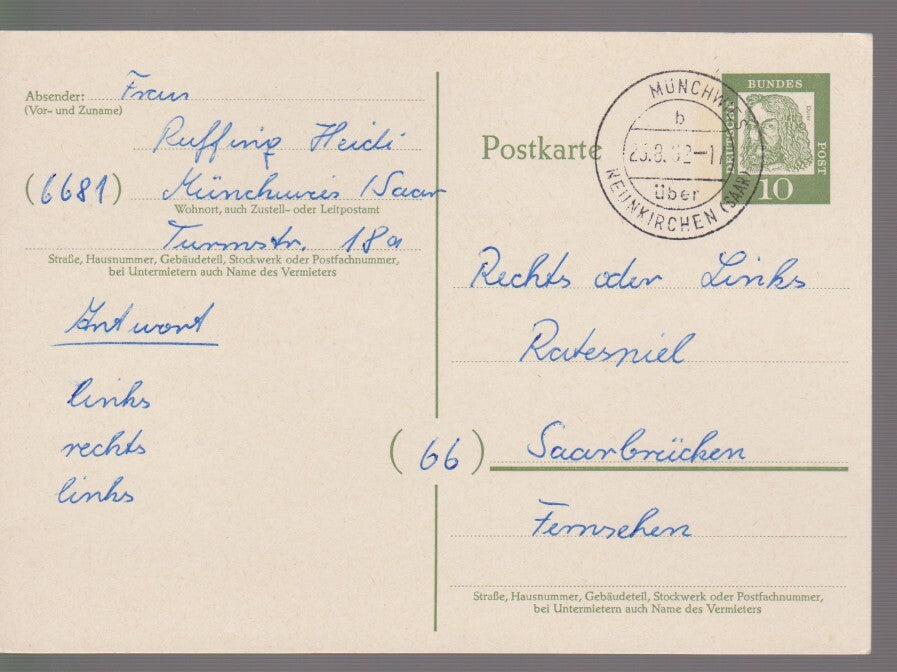 Absender: Frau
(Vor- und Zuname)
Ruffing Heidi
(6681) Münchwies/Saar
Wohnort, auch Zustell- oder Leitpostamt
Turmstr. 18a
Straße, Hausnummer, Gebäudeteil, Stockwerk oder Postfachnummer,
bei Untermietern auch Name des Vermieters
Antwort
links
rechts
links
Postkarte
MÜNCHWIES
b
über
NEUNKIRCHEN (SAAR)
BUNDES
POST
Dürer
10
Rechts oder Links
Ratespiel
(66) Saarbrücken
Fernsehen
Straße, Hausnummer, Gebäudeteil, Stockwerk oder Postfachnummer,
bei Untermietern auch Name des Vermieters